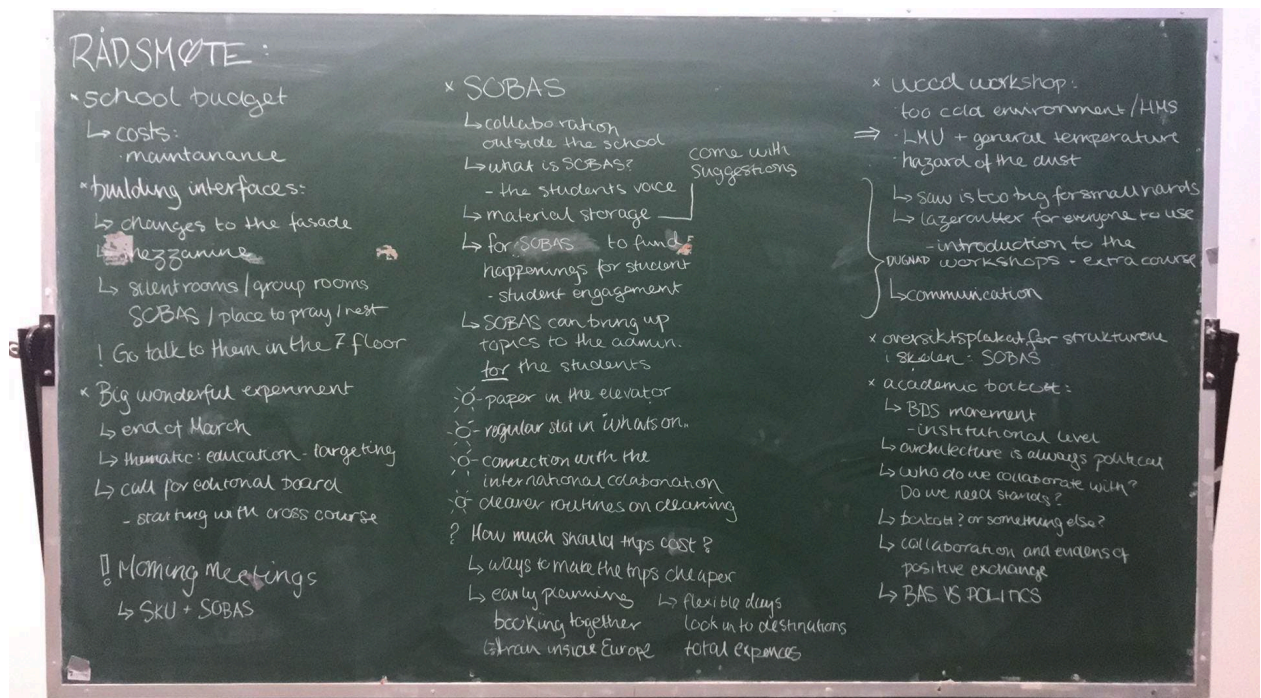 RÅDSMØTE:
* school budget
↳ costs:
· maintanance
* building interfaces:
↳ changes to the fasade
↳ mezzanine
↳ silent rooms / group rooms
SOBAS / place to pray / rest
! Go talk to them in the 7 floor
* Big wonderful experiment
↳ end of March
↳ thematic: education - targeting
↳ call for editorial board
- starting with cross course
! Morning Meetings
↳ SKU + SOBAS
* SOBAS
↳ collaboration
outside the school
↳ what is SOBAS?
- the students voice
↳ material storage
come with
suggestions
↳ for SOBAS to fund
happenings for student
- student engagement
↳ SOBAS can bring up
topics to the admin.
for the students
- paper in the elevator
- regular slot in whats on..
- connection with the
international colaboration
- clearer routines on cleaning
? How much should trips cost?
↳ ways to make the trips cheaper
↳ early planning
booking together
train inside Europe
↳ flexible days
look into destinations
total expences
* wood workshop:
· too cold environment / HMS
⇒ · LMU + general temperature
· hazard of the dust
↳ saw is too big for small hands
↳ lazercutter for everyone to use
- introduction to the
DUGNAD workshops - extra course
↳ communication
* oversiktsplakat for strukturene
i skolen: SOBAS
* academic boikott:
↳ BDS movement
- institutional level
↳ architecture is always political
↳ who do we collaborate with?
Do we need stands?
↳ boikott? or something else?
↳ collaboration and evidens of
positive exchange
↳ BAS VS POLITICS